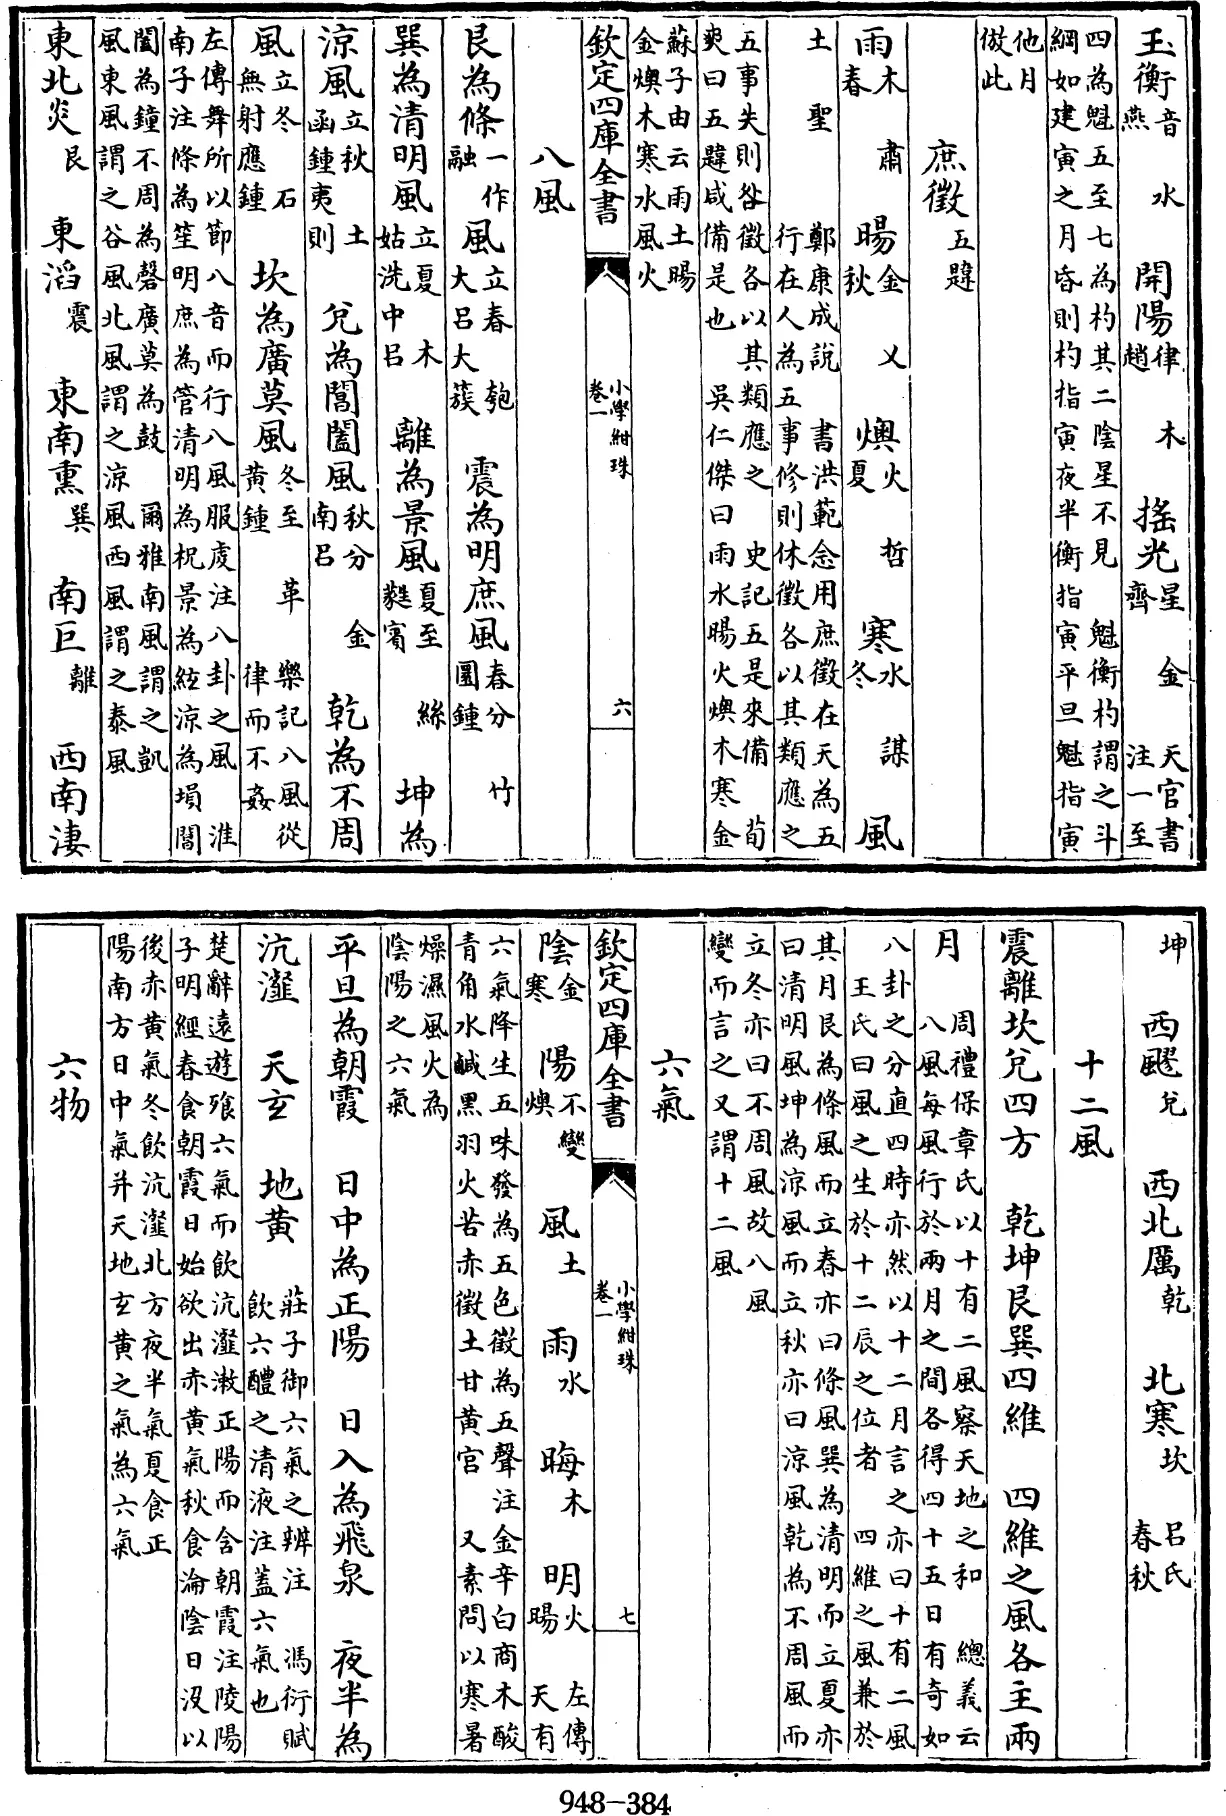 玉衡音燕 水 開陽律趙 木 搖光星齊 金 天官書注一至
四為魁五至七為杓其二陰星不見 魁衡杓謂之斗
綱如建寅之月昏則杓指寅夜半衡指寅平旦魁指寅
他月
倣此
庶徵 五韙
雨木春 肅 暘金秋 乂 燠火夏 哲 寒水冬 謀 風
土 聖 鄭康成說 書洪範念用庶徵在天為五
行在人為五事修則休徵各以其類應之
五事失則咎徵各以其類應之 史記五是來備 荀
爽曰五韙咸備是也 吳仁傑曰雨水暘火燠木寒金
蘇子由云雨土暘
金燠木寒水風火
欽定四庫全書 小學紺珠 卷一 六
八風
艮為條一作融風立春大呂大簇 匏 震為明庶風春分圜鍾 竹
巽為清明風立夏姑洗中呂 木 離為景風夏至蕤賔 絲 坤為
涼風立秋函鍾夷則 土 兌為閶闔風秋分南呂 金 乾為不周
風立冬無射應鍾 石 坎為廣莫風冬至黃鍾 革 樂記八風從律而不姦
左傳舞所以節八音而行八風服虔注八卦之風 淮
南子注條為笙明庶為管清明為柷景為絃涼為塤閶
闔為鐘不周為磬廣莫為鼓 爾雅南風謂之凱
風東風謂之谷風北風謂之涼風西風謂之泰風
東北炎艮 東滔震 東南熏巽 南巨離 西南淒
坤 西飂兌 西北厲乾 北寒坎 呂氏春秋
十二風
震離坎兌四方 乾坤艮巽四維 四維之風各主兩
月 周禮保章氏以十有二風察天地之和 總義云
八風每風行於兩月之間各得四十五日有奇如
八卦之分直四時亦然以十二月言之亦曰十有二風
王氏曰風之生於十二辰之位者 四維之風兼於
其月艮為條風而立春亦曰條風巽為清明而立夏亦
曰清明風坤為涼風而立秋亦曰涼風乾為不周風而
立冬亦曰不周風故八風
變而言之又謂十二風
六氣
陰金寒 陽不變燠 風土 雨水 晦木 明火暘 左傳天有
六氣降生五味發為五色徵為五聲注金辛白商木酸
青角水鹹黑羽火苦赤徵土甘黃宮 又素問以寒暑
燥濕風火為
陰陽之六氣
欽定四庫全書 小學紺珠 卷一 七
平旦為朝霞 日中為正陽 日入為飛泉 夜半為
沆瀣 天玄 地黃 莊子御六氣之辨注 馮衍賦
飲六醴之清液注蓋六氣也
楚辭遠遊飡六氣而飲沆瀣漱正陽而含朝霞注陵陽
子明經春食朝霞日始欲出赤黃氣秋食淪陰日沒以
後赤黃氣冬飲沆瀣北方夜半氣夏食正
陽南方日中氣并天地玄黃之氣為六氣
六物
948-384